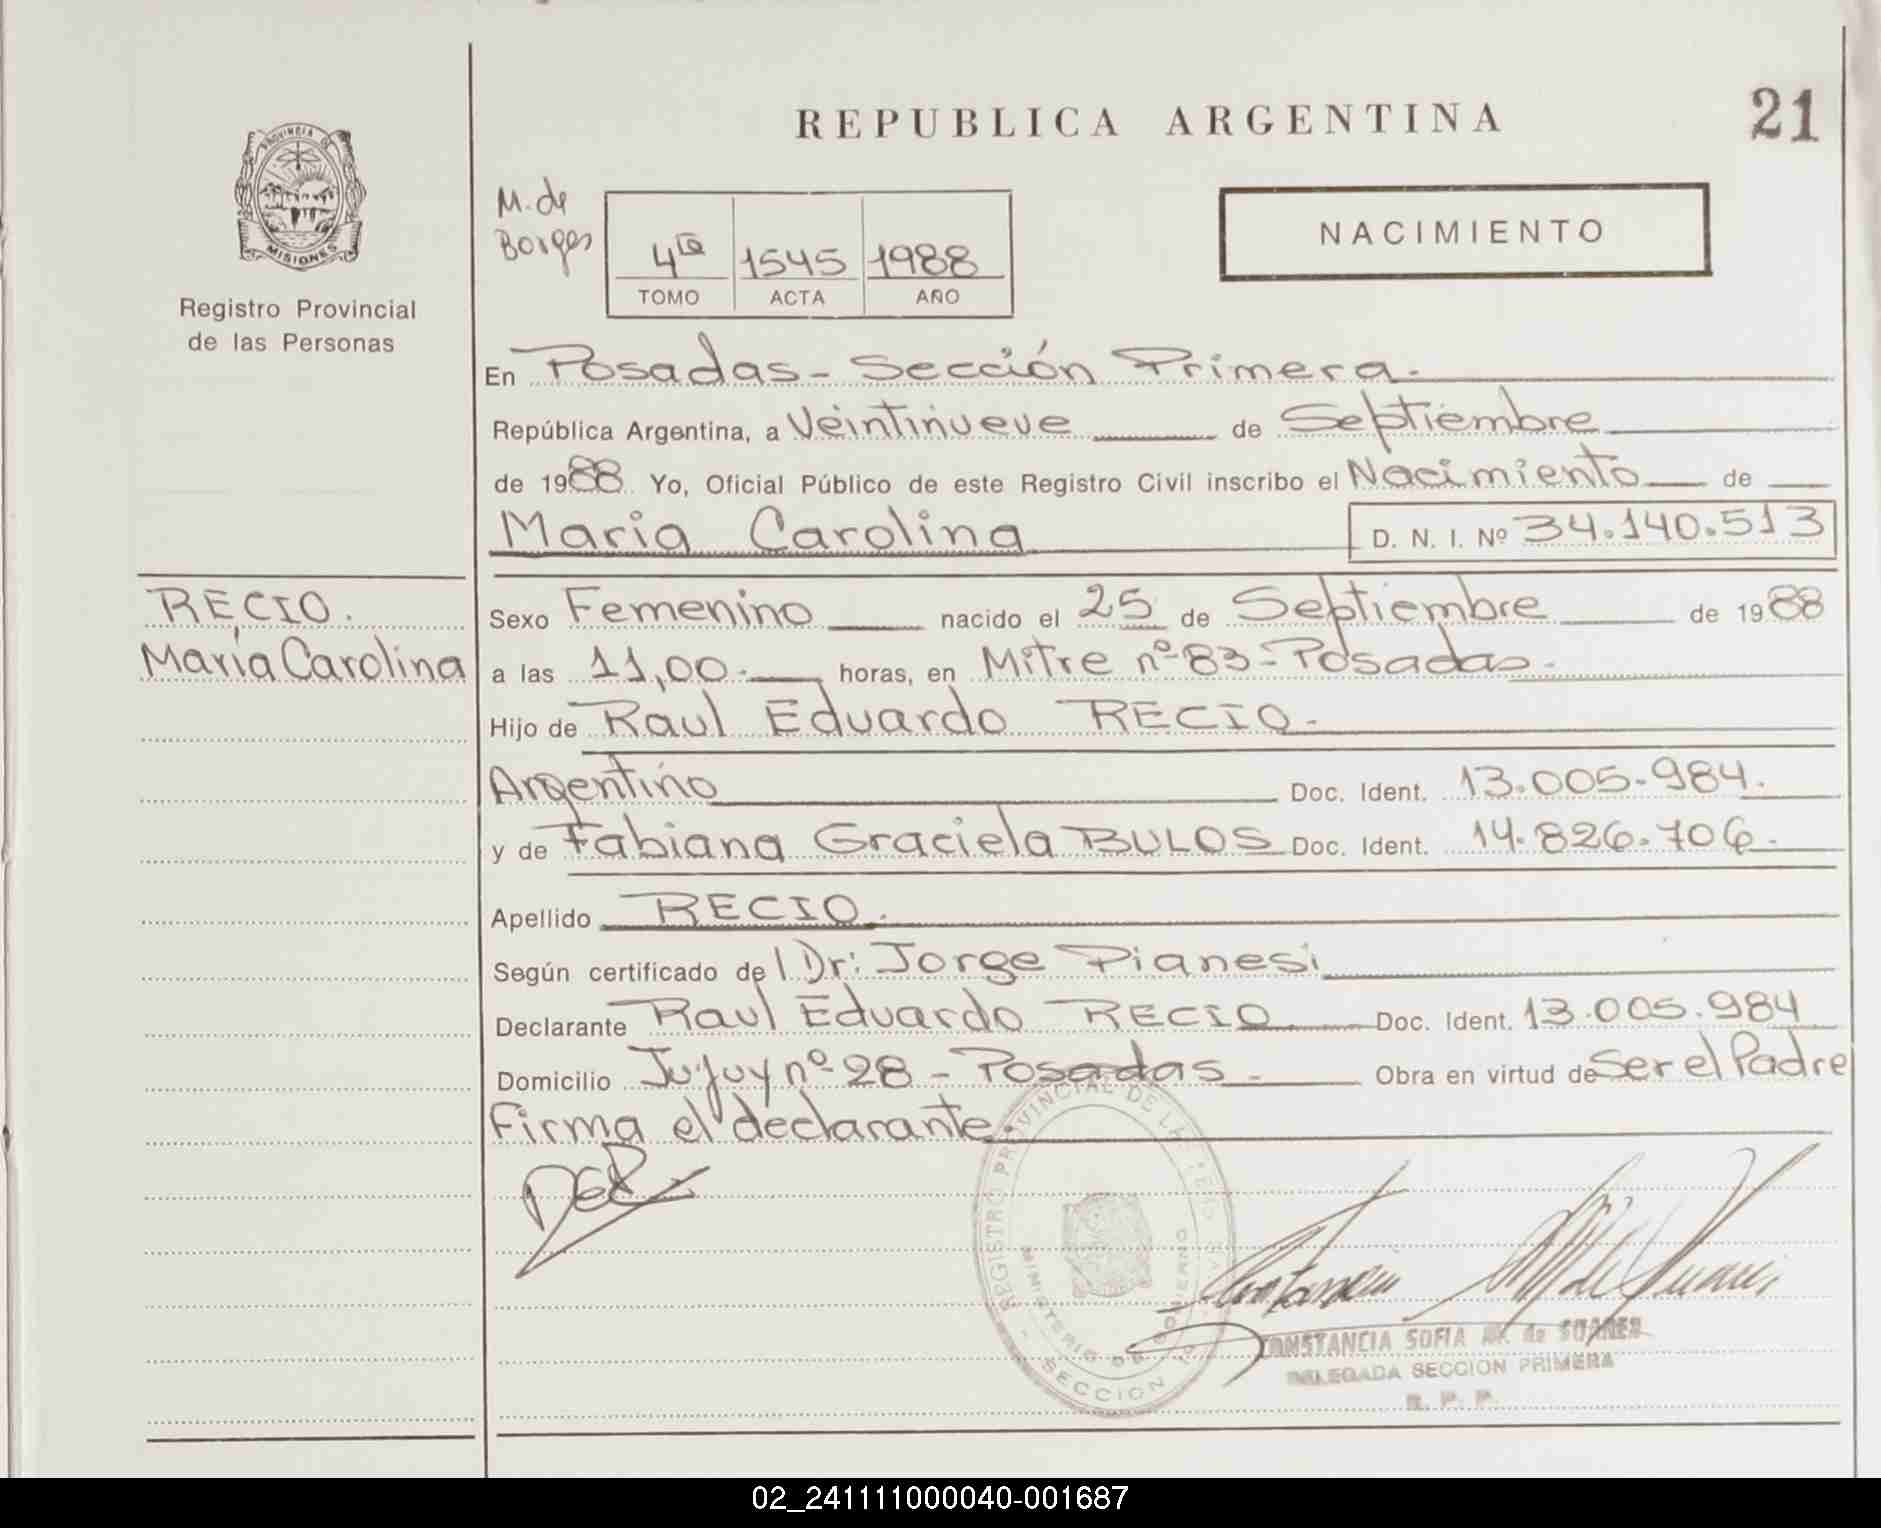 REPUBLICA ARGENTINA
21
PROVINCIA DE
MISIONES
Registro Provincial
de las Personas
M. de
Borges
4ta 1545 1988
TOMO ACTA AÑO
NACIMIENTO
En Posadas - Sección Primera.
República Argentina, a Veintinueve de Septiembre
de 1988. Yo, Oficial Público de este Registro Civil inscribo el Nacimiento de
Maria Carolina D. N. I. Nº 34.140.513
RECIO.
María Carolina
Sexo Femenino nacido el 25 de Septiembre de 1988
a las 11,00.- horas, en Mitre nº 83 - Posadas.
Hijo de Raul Eduardo RECIO.
Argentino Doc. Ident. 13.005.984.
y de Fabiana Graciela BULOS Doc. Ident. 14.826.706.
Apellido RECIO.
Según certificado del Dr: Jorge Pianesi
Declarante Raul Eduardo RECIO Doc. Ident. 13.005.984
Domicilio Jujuy nº 28 - Posadas. Obra en virtud de Ser el Padre
Firma el declarante.
REGISTRO PROVINCIAL DE LAS PERSONAS
MINISTERIO DE GOBIERNO
SECCION
CONSTANCIA SOFIA M. de SUAREZ
DELEGADA SECCION PRIMERA
R. P. P.
02_241111000040-001687